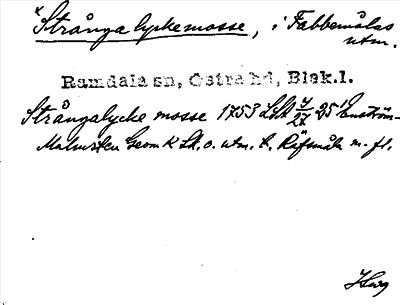 x Strångalyckemosse, i Fabbemålas
utm.
Ramdala sn, Östra hd, Blek.l.
Strångalycke mosse 1753 LSA 4/27 25' Enström-
Malmsten Geom K Skt. o. utm. t. Räfsmåla m. fl.